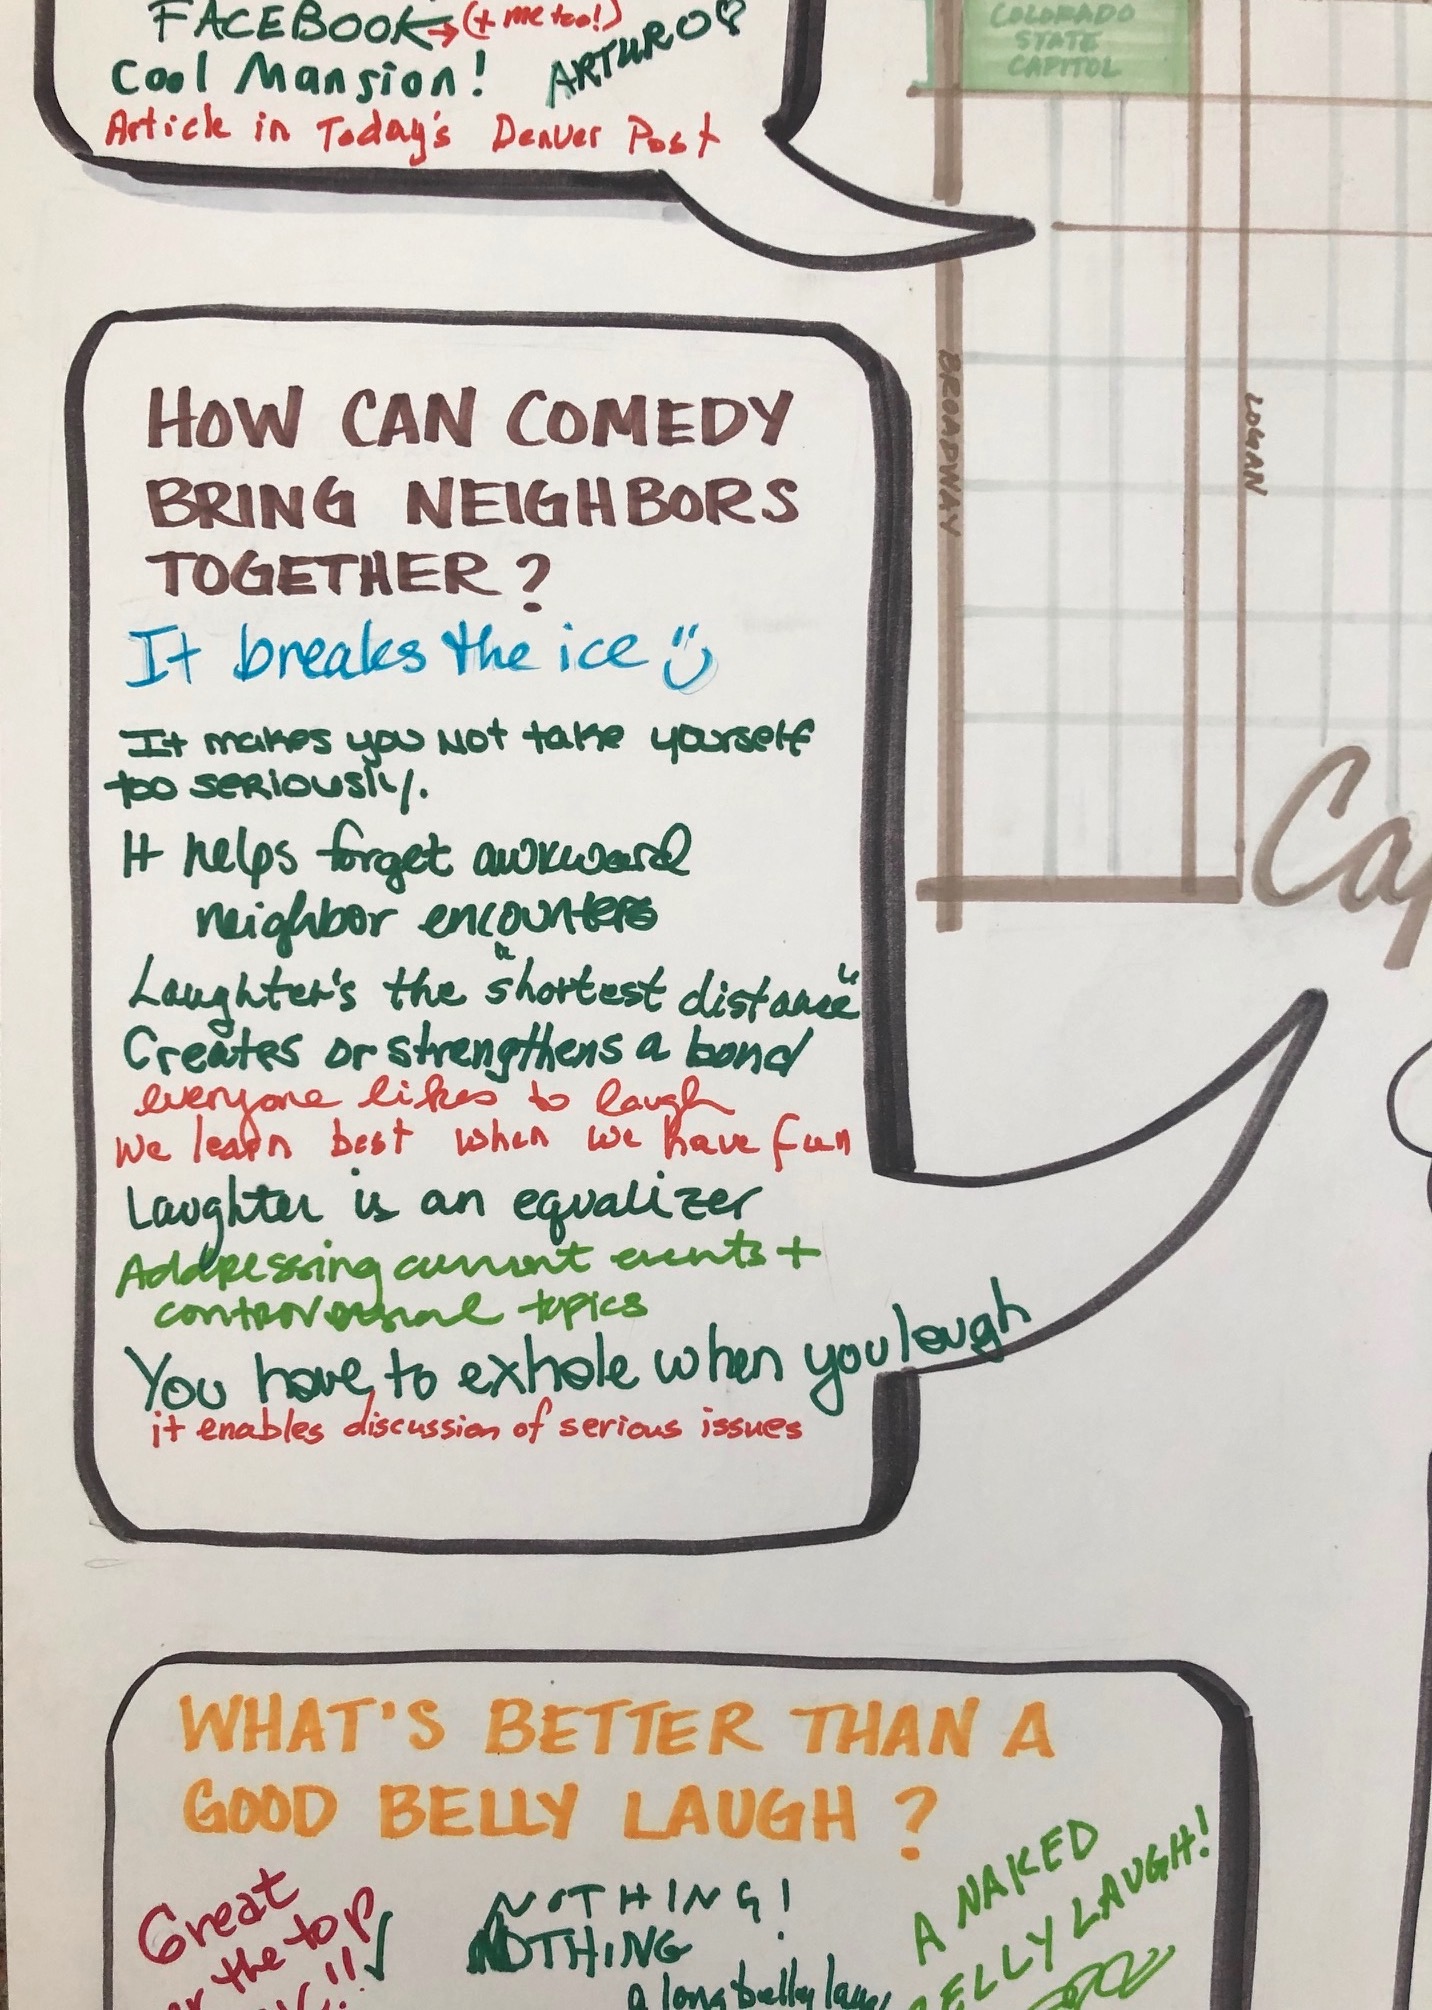 FACEBOOK → (+ me too!)
Cool Mansion! ARTURO
Article in Today's Denver Post
COLORADO
STATE
CAPITOL
BROADWAY
LOGAN
Cap
HOW CAN COMEDY
BRING NEIGHBORS
TOGETHER?
It breaks the ice
It makes you NOT take yourself
too seriously.
It helps forget awkward
neighbor encounters
Laughter's the "shortest distance"
Creates or strengthens a bond
everyone likes to laugh
We learn best when we have fun
Laughter is an equalizer
Addressing current events +
controversial topics
You have to exhale when you laugh
it enables discussion of serious issues
WHAT'S BETTER THAN A
GOOD BELLY LAUGH?
Great
the top
NOTHING!
NOTHING
a long belly
A NAKED
BELLY LAUGH!